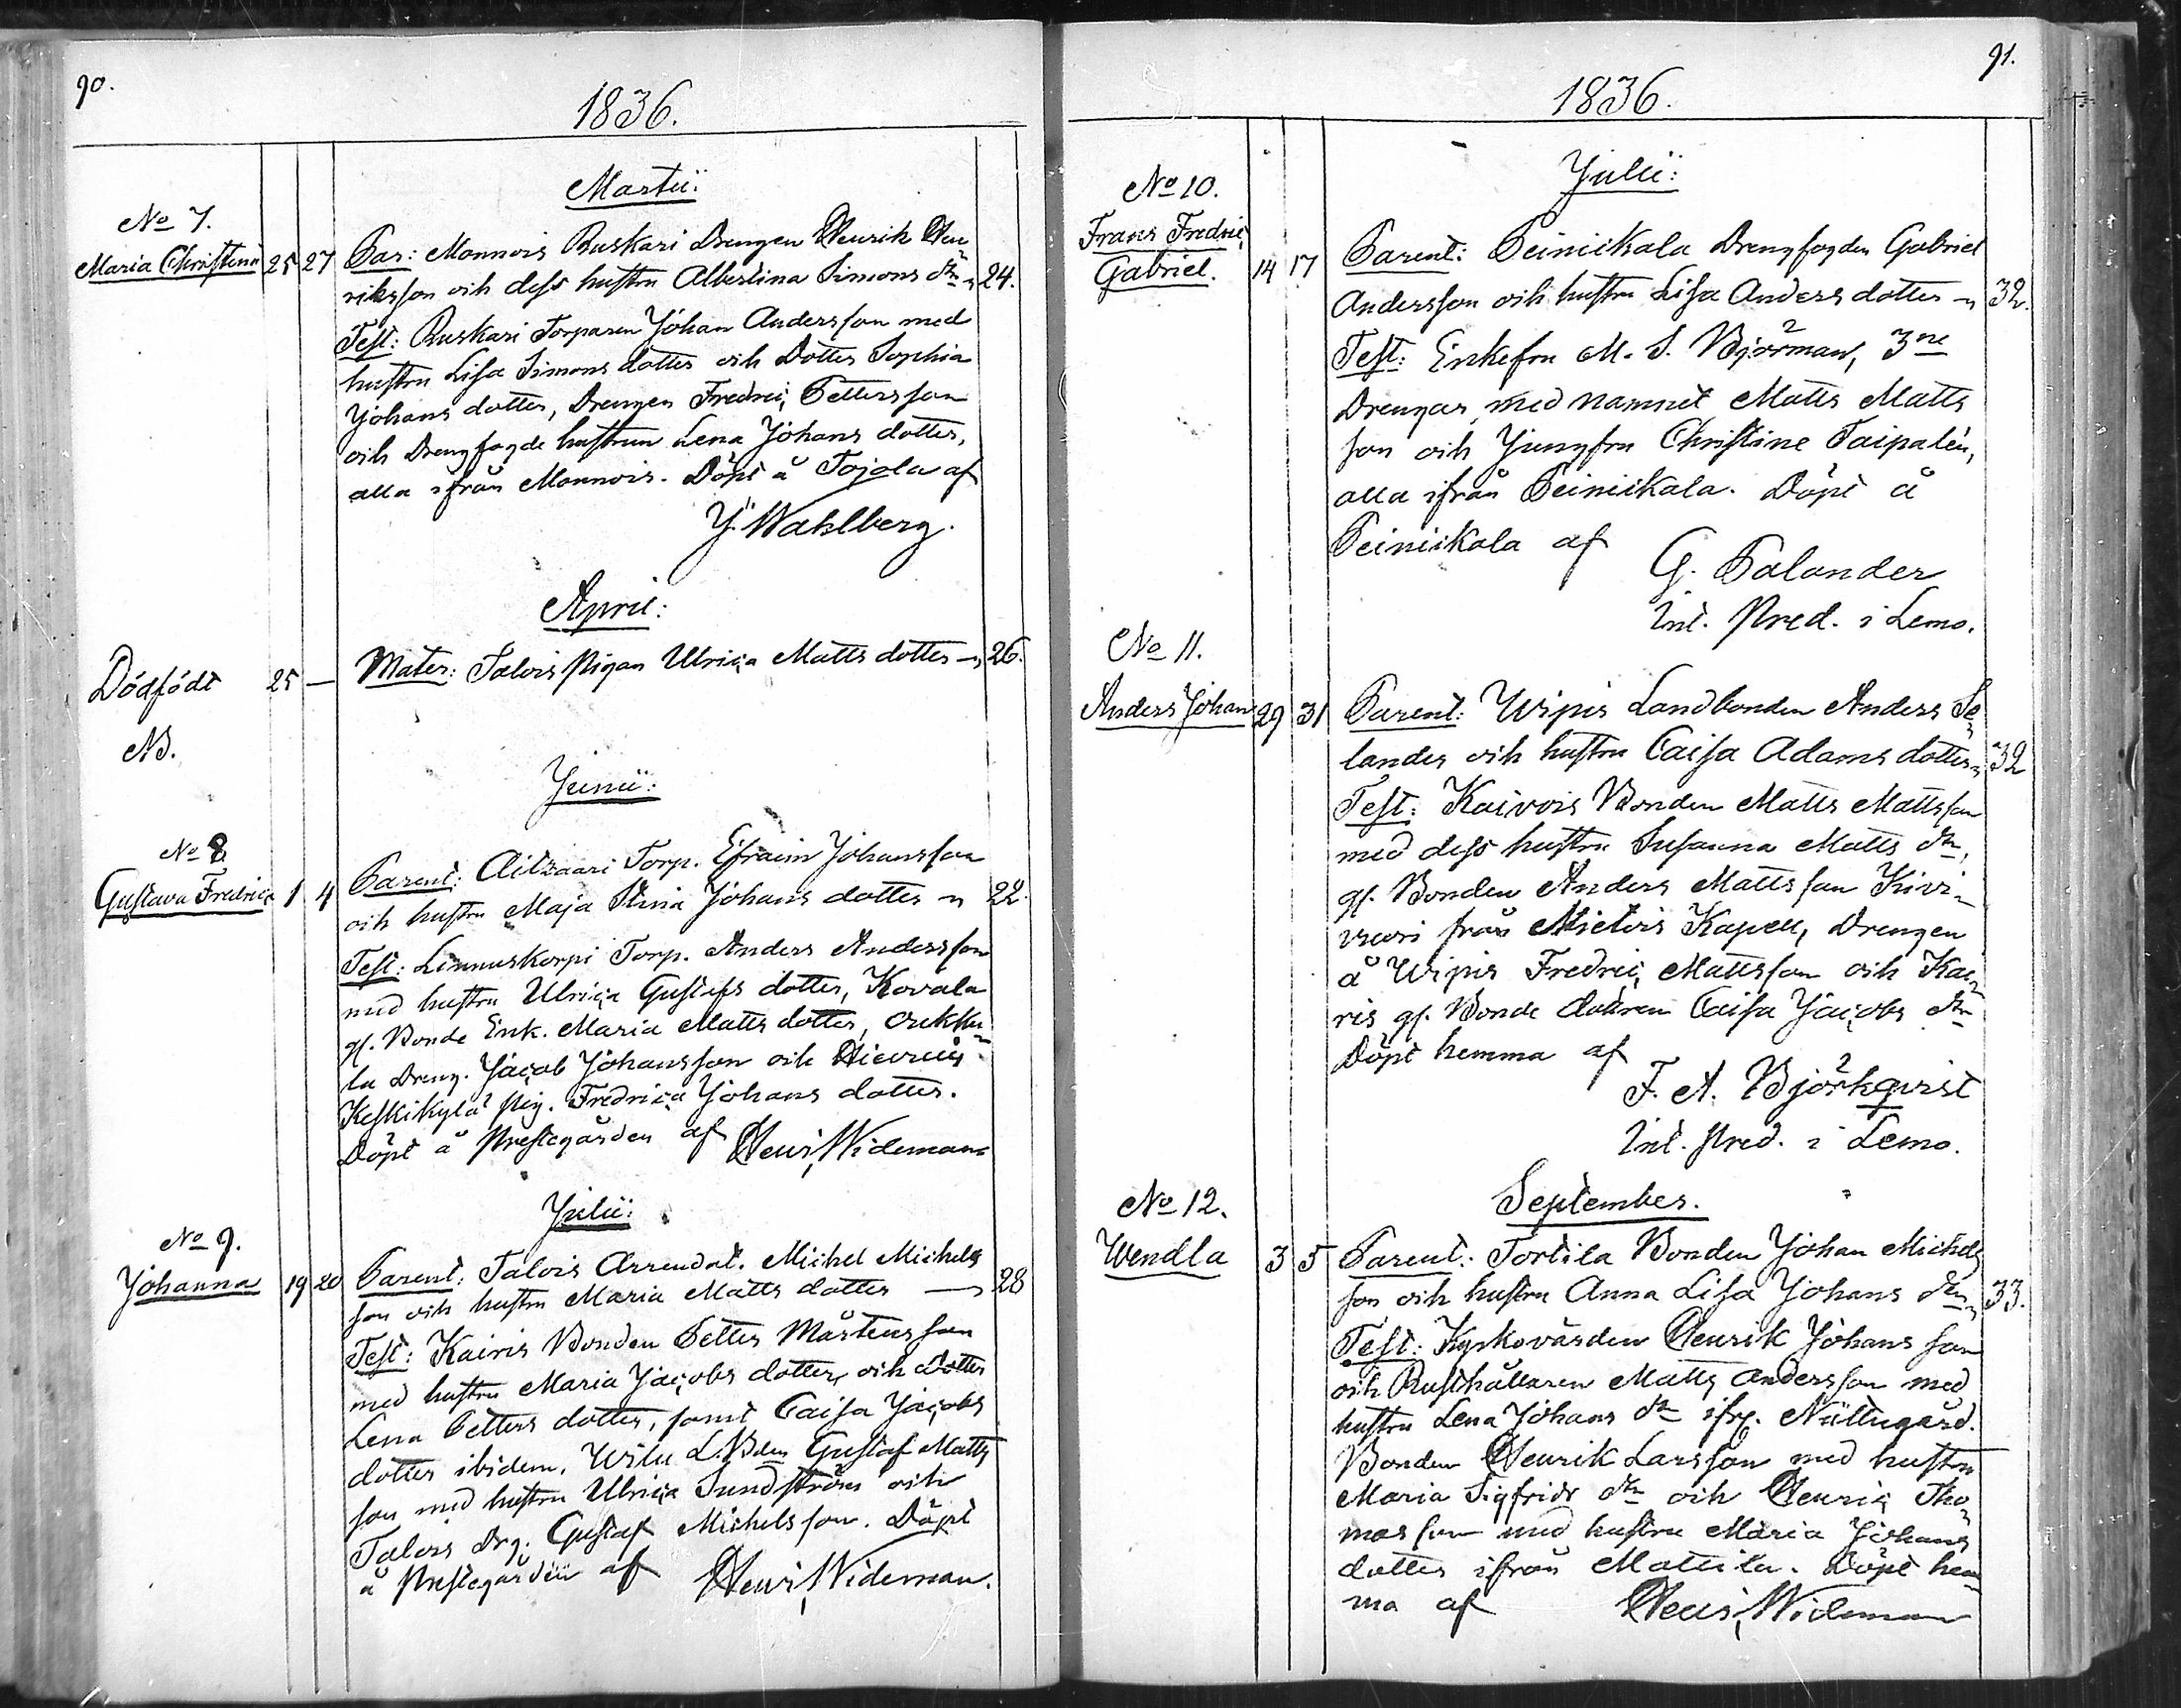 90.
1836.
Martii:
No 7.
Maria Christina 25 27 Par: Monnois Ruskari Drengen Henrik Hen
riksson och dess hustru Albertina Simons dtr 24.
Test: Ruskari Torparen Johan Andersson med
hustru Lisa Simons dotter och Dotter Sophia
Johans dotter, Drengen Fredric Pettersson
och Drengfogde hustrun Lena Johans dotter,
alla ifrån Monnois. Döpt å Tojola af
J. Wahlberg.
April:
Dödfödt 25 — Mater: Talois Pigan Ulrica Matts dotter 26.
NB.
Junii:
No 8
Gustava Fredrica 1 4 Parent: Aitzaari Torp. Efraim Johansson
och hustru Maja Stina Johans dotter 22.
Test: Linnuskorpi Torp. Anders Andersson
med hustru Ulrica Gustafs dotter, Kovala
gl. Bonde Enk. Maria Matts dotter,
la Dreng. Jacob Johansson och
Keskikylä pig. Fredrica Johans dotter.
Döpt å Prestegården af Henr. Wideman
Julii:
No 9.
Johanna 19 20 Parent: Talois Arrendat. Michel Michels
son och hustru Maria Matts dotter — 28
Test: Kairis Bonden Petter Mårtensson
med hustru Maria Jacobs dotter, och dotter
Lena Petters dotter, samt Caisa Jacobs
dotter ibidem, Wilu L.Bden Gustaf Matts
son med hustru Ulrica Sundström och
Talois drg. Gustaf Michelsson. Döpt
å Prestegården af Henr. Wideman.
91.
1836.
Julii:
No 10.
Frans Fredric
Gabriel. 14 17 Parent: Peinikkala Drengfogden Gabriel
Andersson och hustru Lisa Anders dotter 32.
Test: Enkefru M. S. Björman, 3ne
Drengar med namnet Matts Matts
son och Jungfru Christine Taipalén,
alla ifrån Peinikkala. Döpt å
Peinikkala af
G. Palander
Int. Pred. i Lemo.
No 11.
Anders Johan 29 31 Parent: Wipis Landbonden Anders Se
lander och hustru Caisa Adams dotter 32
Test: Kaivois Bonden Matts Mattsson
med dess hustru Susanna Matts dtr,
gl. Bonden Anders Mattsson Kivi
vuori från Mietois Kapell, Drengen
å Wipis Fredric Mattsson och Kai
ris gl. Bonde dottren Caisa Jacobs dtr
Döpt hemma af
F. A. Björkqvist
Int. Pred. i Lemo.
September.
No 12.
Wendla 3 5 Parent: Tortila Bonden Johan Michels
son och hustru Anna Lisa Johans dtr 33.
Test: Kyrkovärden Henrik Johans son
och Rusthållaren Matts Andersson med
hustru Lena Johans dtr ifr.
Bonden Henrik Larsson med hustru
Maria Sigfrids dtr och Henric Tho
masson med hustru Maria Johans
dotter ifrån Mattila. Döpt hem
ma af Henr. Wideman